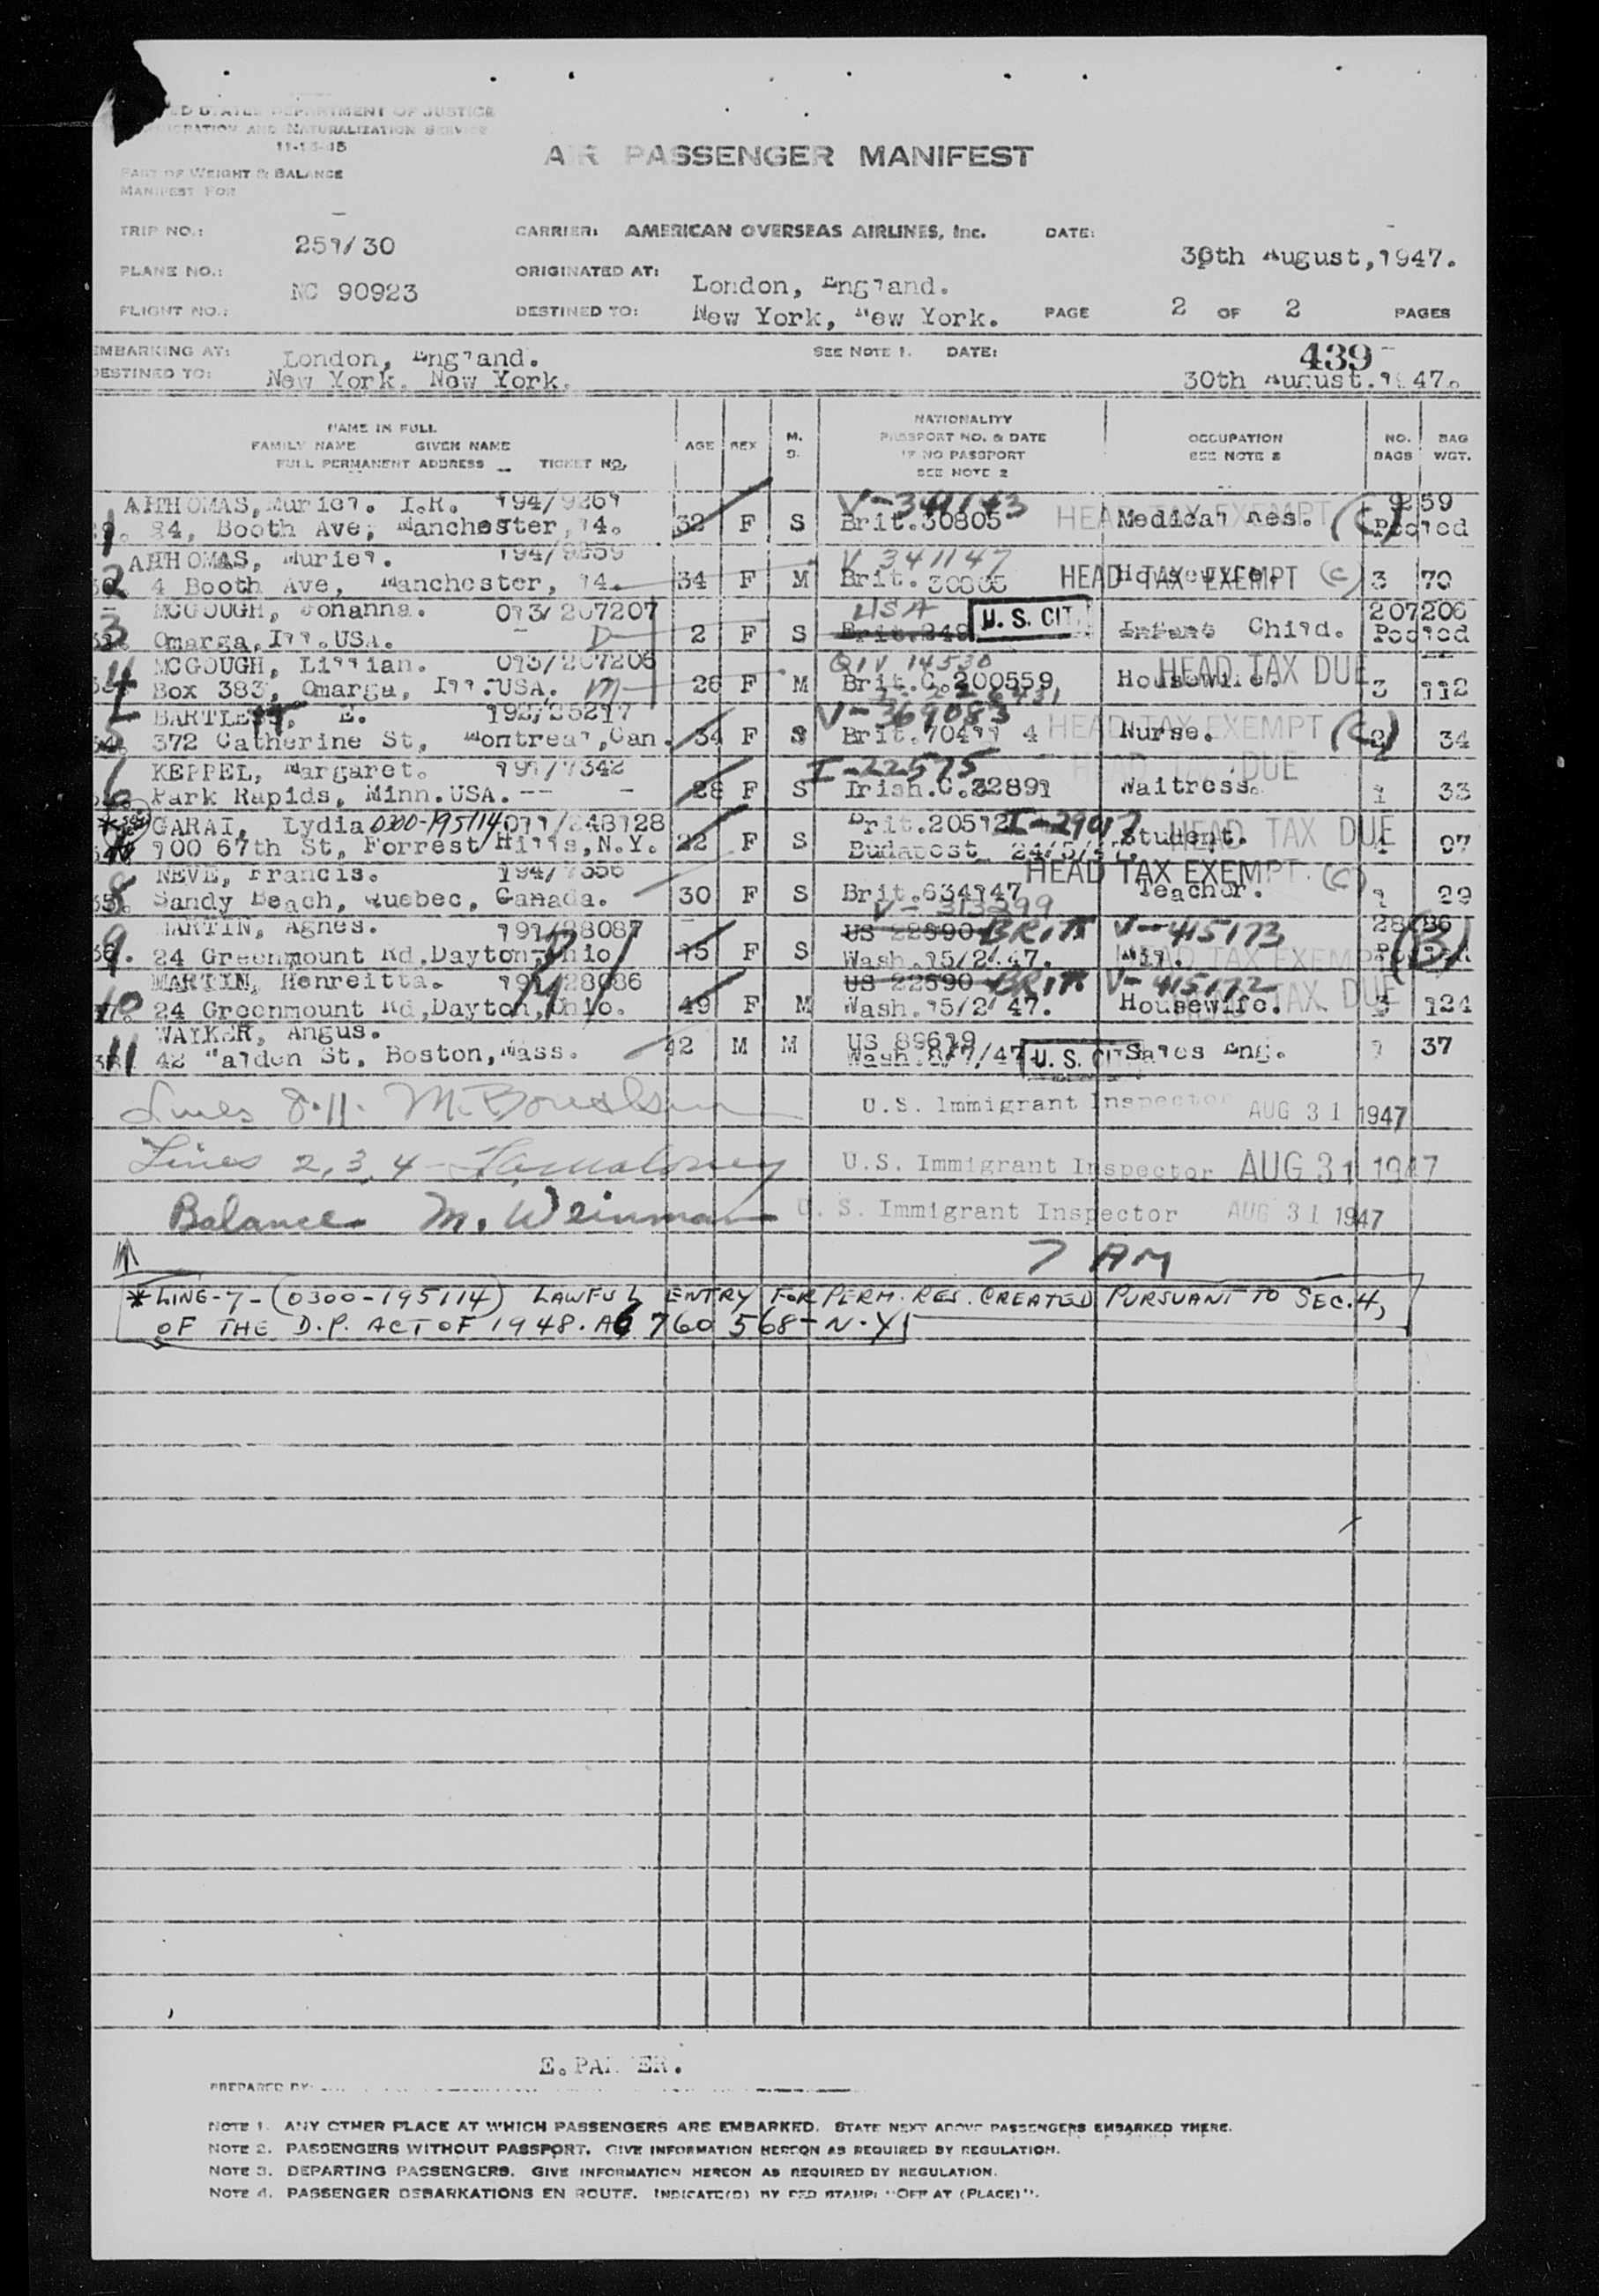 ED STATES DEPARTMENT OF JUSTICE
IMMIGRATION AND NATURALIZATION SERVICE
11-15-45
AIR PASSENGER MANIFEST
PART OF WEIGHT & BALANCE
MANIFEST FOR
TRIP NO.: 251/30 CARRIER: AMERICAN OVERSEAS AIRLINES, Inc. DATE: 30th August,1947.
PLANE NO.: NC 90923 ORIGINATED AT: London, England.
FLIGHT NO.: DESTINED TO: New York, New York. PAGE 2 OF 2 PAGES
EMBARKING AT: London, England. SEE NOTE 1. DATE: 439
DESTINED TO: New York, New York. 30th August.1947.
NAME IN FULL
FAMILY NAME GIVEN NAME
FULL PERMANENT ADDRESS TICKET NO.
AGE SEX M. S.
NATIONALITY
PASSPORT NO. & DATE
IF NO PASSPORT
SEE NOTE 2
OCCUPATION
SEE NOTE 3
NO. BAGS
BAG WGT.
THOMAS, Muriel. I.R. 194/9261 V-341143 9259
1 84, Booth Ave, Manchester, 14. 32 F S Brit.30805 HEAD TAX EXEMPT Medical Res. (C) Pooled
THOMAS, Muriel. 194/9259 V 341147
2 4 Booth Ave, Manchester, 14. 34 F M Brit. 30805 HEAD TAX EXEMPT Housewife. (C) 3 70
MCGOUGH, Johanna. 013/207207 USA U. S. CIT. 207206
3 Omarga, Ill.USA. D 2 F S Brit.249 Infant Child. Pooled
MCGOUGH, Lillian. 013/207206 QIV 14530 HEAD TAX DUE
4 Box 383, Omarga, Ill.USA. M 26 F M Brit.C.200559 Housewife. 3 112
BARTLETT, E. 192/25217 V-369083 HEAD TAX EXEMPT
5 372 Catherine St, Montreal,Can. 34 F S Brit.70411 4 Nurse. (C) 2 34
KEPPEL, Margaret. 191/1342 I-22575 HEAD TAX DUE
6 Park Rapids, Minn.USA. 28 F S Irish.C.32891 Waitress. 1 33
* GARAI, Lydia 0300-195114 011/248128 Brit.20512 I-29017 HEAD TAX DUE
7 100 67th St, Forrest Hills, N.Y. 22 F S Budapest 24/5/47. Student. 1 07
NEVE, Francis. 194/1356 HEAD TAX EXEMPT. (C)
8 Sandy Beach, Quebec, Canada. 30 F S Brit.634147 Teacher. 1 29
V-313299
MARTIN, Agnes. 191/28087 US 22590 BRIT V-415173 28086
9 24 Greenmount Rd.Dayton,Ohio D 15 F S Wash.15/2/47. Nil. HEAD TAX EXEMPT (B) Pooled
MARTIN, Henreitta. 191/28086 US 22590 BRIT V-415172
10 24 Greenmount Rd,Dayton,Ohio. M 49 F M Wash.15/2/47. Housewife. HEAD TAX DUE 3 124
WALKER, Angus. US 89619
11 42 Walden St, Boston,Mass. 42 M M Wash.8/7/47 U. S. CIT Sales Eng. 1 37
Lines 8-11. U.S. Immigrant Inspector AUG 31 1947
Lines 2,3,4 - U.S. Immigrant Inspector AUG 31 1947
Balance M. Weinman U. S. Immigrant Inspector AUG 31 1947
7 AM
* LINE-7-(0300-195114) LAWFUL ENTRY FOR PERM. RES. CREATED PURSUANT TO SEC. 4,
OF THE D.P. ACT OF 1948. A6 760 568-N.Y.
PREPARED BY:
NOTE 1. ANY OTHER PLACE AT WHICH PASSENGERS ARE EMBARKED. STATE NEXT ABOVE PASSENGERS EMBARKED THERE.
NOTE 2. PASSENGERS WITHOUT PASSPORT. GIVE INFORMATION HEREON AS REQUIRED BY REGULATION.
NOTE 3. DEPARTING PASSENGERS. GIVE INFORMATION HEREON AS REQUIRED BY REGULATION.
NOTE 4. PASSENGER DEBARKATIONS EN ROUTE. INDICATE(D) BY RED STAMP: "OFF AT (PLACE)".